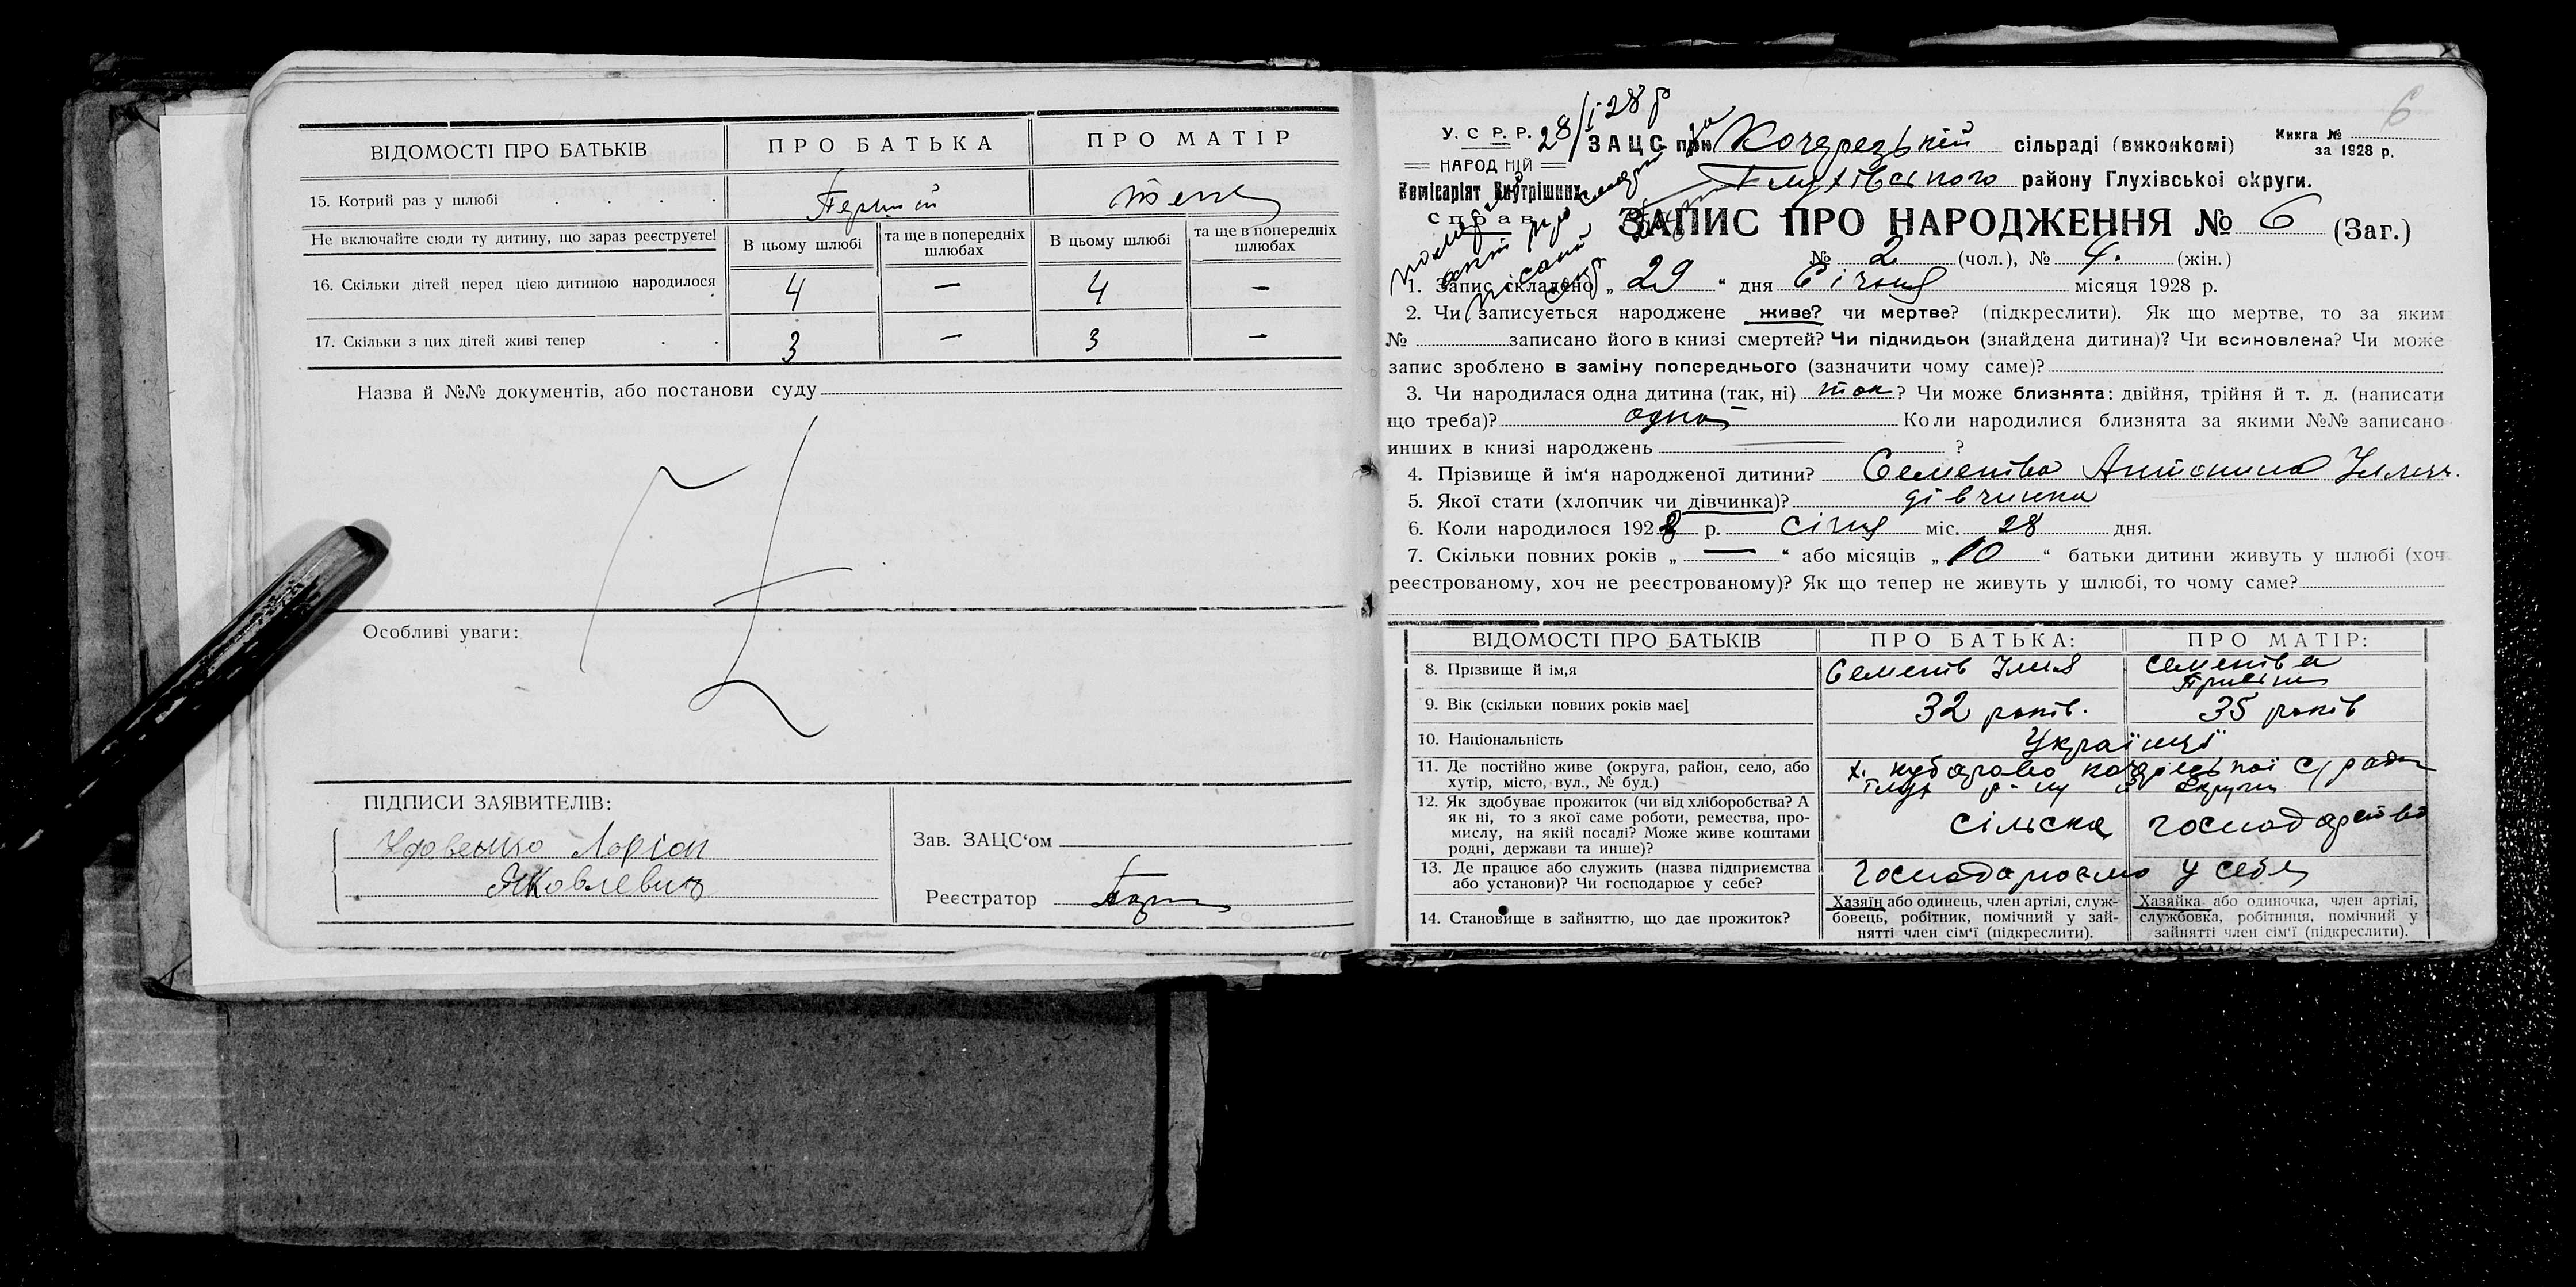 ВІДОМОСТІ ПРО БАТЬКІВ
ПРО БАТЬКА
ПРО МАТІР
15. Котрий раз у шлюбі
Перший
теж
Не включайте сюди ту дитину, що зараз реєструєте!
В цьому шлюбі
та ще в попередніх шлюбах
В цьому шлюбі
та ще в попередніх шлюбах
16. Скільки дітей перед цією дитиною народилося
4 — 4 —
17. Скільки з цих дітей живі тепер
3 — 3 —
Назва й №№ документів, або постанови суду
Особливі уваги:
ПІДПИСИ ЗАЯВИТЕЛІВ:
Удовенко Ларіон
Яковлевич
Зав. ЗАЦС‘ом
Реєстратор
6
28/I 28 р
У. С. Р. Р.
НАРОДНІЙ
Комісаріят Внутрішних
Справ
ЗАЦС при сільраді (виконкомі)
Книга №
за 1928 р.
Глухівського району Глухівської округи.
ЗАПИС ПРО НАРОДЖЕННЯ № 6 (Заг.)
№ 2 (чол.), № 4. (жін.)
1. Запис складено „ 29 “ дня Січня місяця 1928 р.
2. Чи записується народжене живе? чи мертве? (підкреслити). Як що мертве, то за яким
№ записано його в книзі смертей? Чи підкидьок (знайдена дитина)? Чи всиновлена? Чи може
запис зроблено в заміну попереднього (зазначити чому саме)?
3. Чи народилася одна дитина (так, ні) так ? Чи може близнята: двійня, трійня й т. д. (написати
що треба)? одна Коли народилися близнята за якими №№ записано
инших в книзі народжень ?
4. Прізвище й ім‘я народженої дитини? Антонина
5. Якої стати (хлопчик чи дівчинка)? дівчинка
6. Коли народилося 1928 р. січня міс. 28 дня.
7. Скільки повних років „ — “ або місяців „ 10 “ батьки дитини живуть у шлюбі (хоч
реєстрованому, хоч не реєстрованому)? Як що тепер не живуть у шлюбі, то чому саме?
ВІДОМОСТІ ПРО БАТЬКІВ
ПРО БАТЬКА:
ПРО МАТІР:
8. Прізвище й ім,я
9. Вік (скільки повних років має]
32 років.
35 років
10. Національність
Українці
11. Де постійно живе (округа, район, село, або
хутір, місто, вул., № буд.)
12. Як здобуває прожиток (чи від хліборобства? А
як ні, то з якої саме роботи, ремества, про-
мислу, на якій посаді? Може живе коштами
родні, держави та инше)?
сільске господарство
13. Де працює або служить (назва підприємства
або установи)? Чи господарює у себе?
господарюємо у себе
14. Становище в зайняттю, що дає прожиток?
Хазяїн або одинець, член артілі, служ-
бовець, робітник, помічний у зай-
нятті член сім‘ї (підкреслити).
Хазяйка або одиночка, член артілі,
службовка, робітниця, помічний у
зайнятті член сім‘ї (підкреслити).